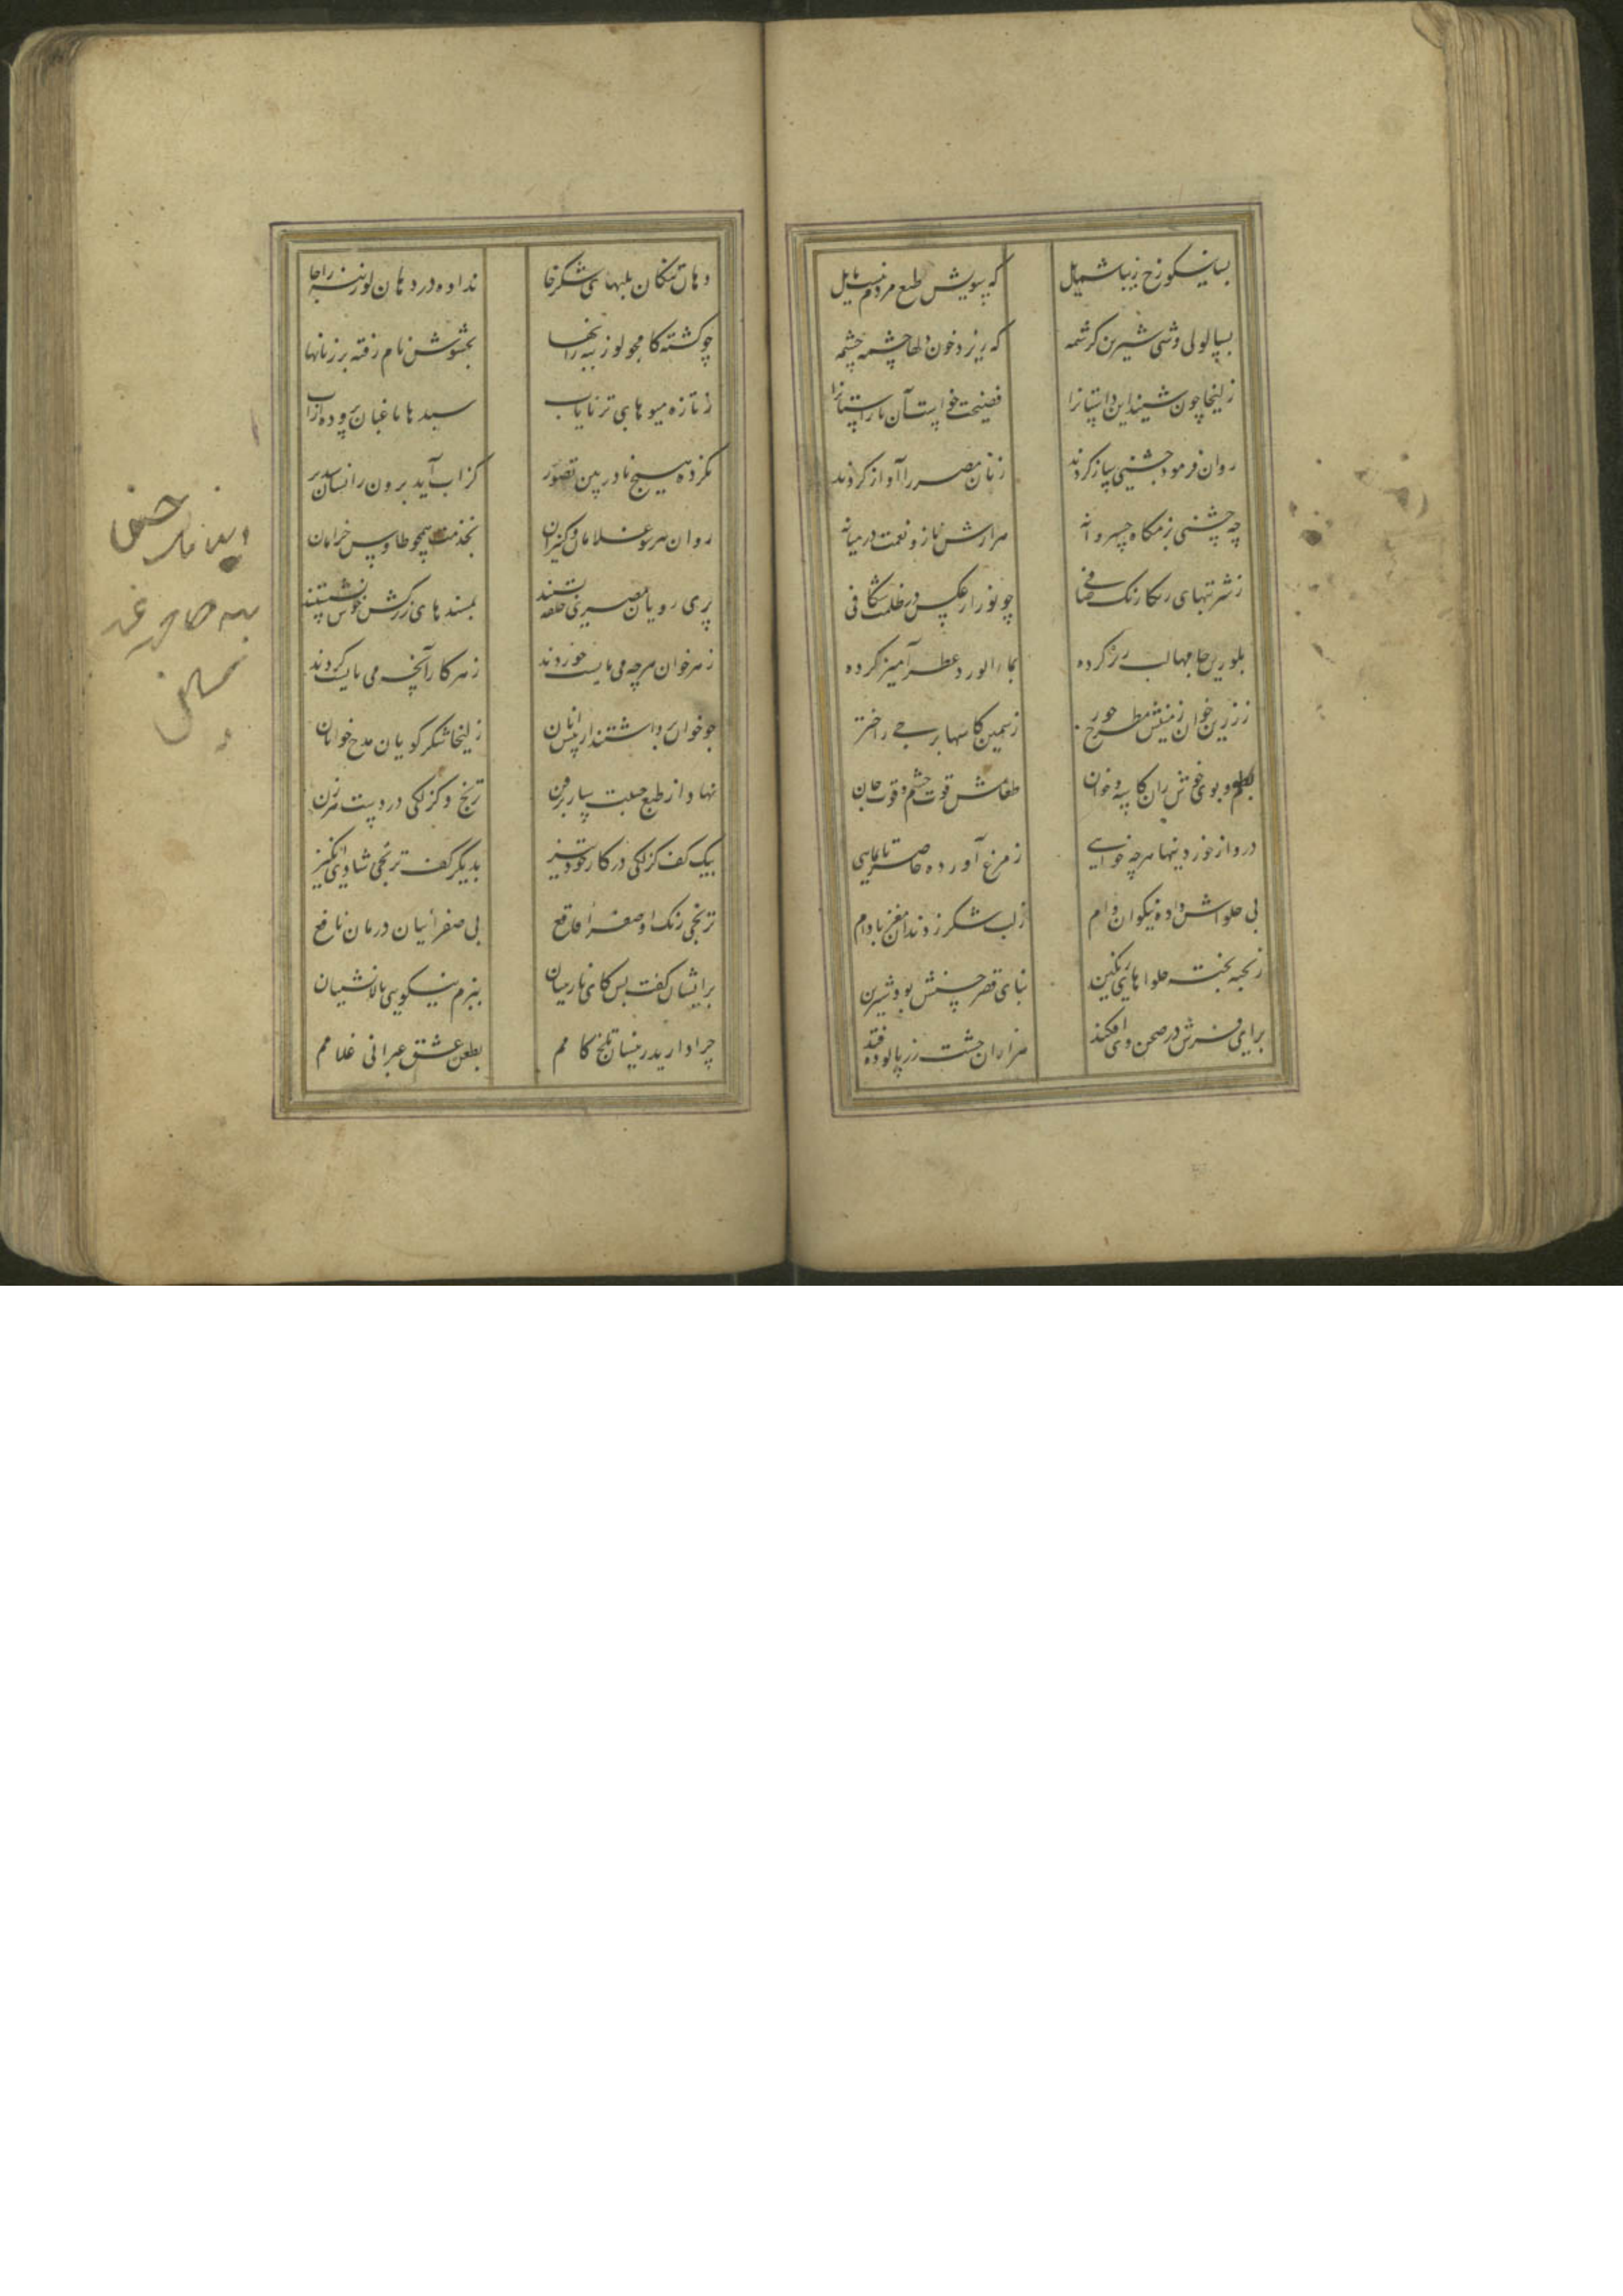 بسا نیکو رخ زیبا شمایل
که سویش طبع مردم نیست مایل
بسا لولی وشی شیرین کرشمه
که ریزد خون دلها چشمه چشمه
زلیخا چون شنید این داستانرا
فضیحت خواست آن ناراستانرا
روان فرمود جشنی ساز کردند
زنان مصر را آواز کردند
چه جشنی بزمگاه خسروانه
هزارش ناز و نعمت در میانه
ز شربتهای رنگارنگ صافی
چو نور از عکس در ظلمت شکافی
بلورین جامها لبریز کرده
بماء الورد عطر آمیز کرده
ز زرین خوان زمینش مطرح خور
ز سیمین کاسها برجی پر اختر
بطعم و بوی خوش ز آن کاسه و خوان
طعامش قوت جسم و قوت جان
درو از خوردنیها هر چه خواهی
ز مرغ آورده حاضر تا بماهی
پی حلواش داده نیکوان وام
ز لب شکر ز دندان مغز بادام
ز تخته تخته حلواهای رنگین
بنای قصر جشنش بود شیرین
برای فرش در صحن وی افکند
هزاران خشت زر پالوده قند
دهان تنگان بلبهای شکرخا
نداده در دهان لوزینه را جا
چو گشته کامجو لوزینه ز آنها
بحشوش نام رفته بر زبانها
ز تازه میوهای تر نایاب
سبدها باغبان پر کرده از آب
نکرده هیچ نادربین تصور
کز آب آید برون زانسان سبد پر
روان هر سو غلامان و کنیزان
بخدمت همچو طاوس خرامان
پری رویان مصری حلقه بستند
بمسندهای زرکش خوش نشستند
ز هر خوان هر چه می بایست خوردند
ز هر کار آنچه می بایست کردند
چو خوان برداشتند از پیش آنان
زلیخا شکر گویان مدح خوانان
نهاد از طبع حیلت ساز پر فن
ترنج و گزلکی در دست هر زن
بیک کف گزلکی در کار خود تیز
بدیگر کف ترنجی شادی انگیز
ترنجی رنگ او صفرا فاقع
پی صفرائیان درمان نافع
بدیشان گفت پس کای نازنینان
ببزم نیکویی بالا نشینان
چرا دارید زینسان تلخ کامم
بطعن عشق عبرانی غلامم